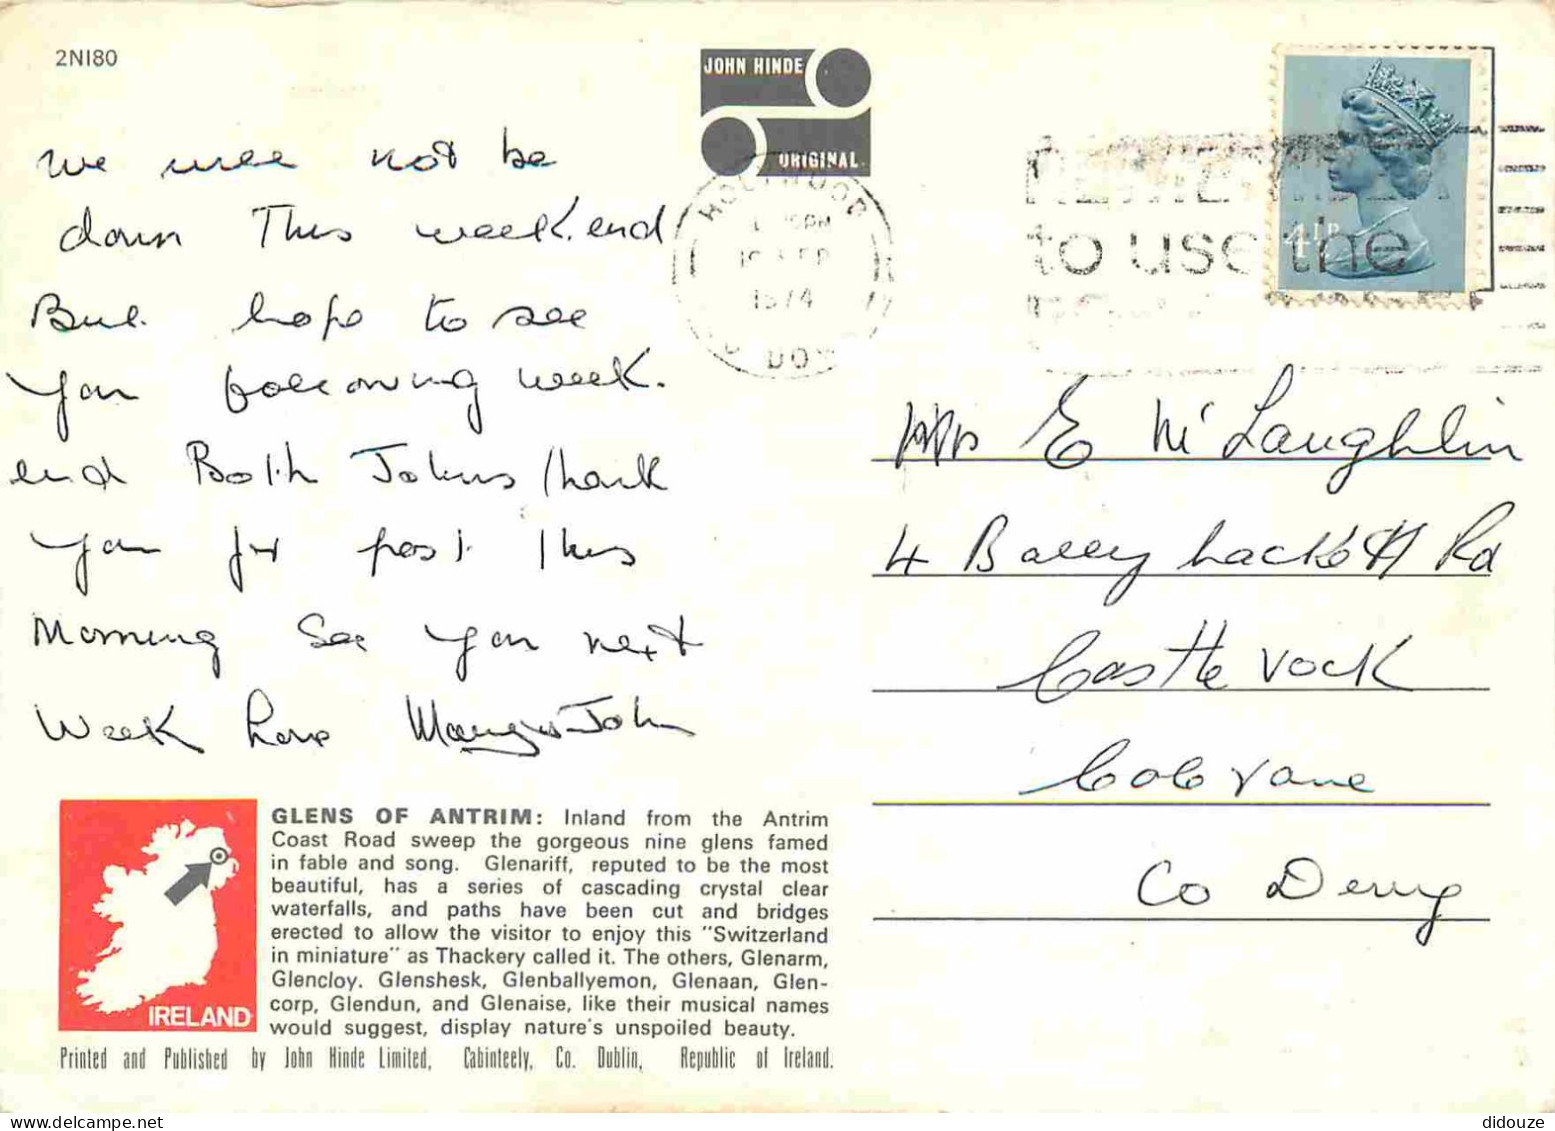 2NI80
JOHN HINDE
ORIGINAL
HOLYWOOD
1974
CO DOWN
REMEMBER
to use the
4½P
We wee not be
down This week.end
But hope to see
you following week.
end Both Johns thank
you for post this
Morning See you next
Week love John
Mrs E Mc Laughlin
4 Ballyhackett Rd
Castle rock
Colerane
Co Derry
GLENS OF ANTRIM: Inland from the Antrim
Coast Road sweep the gorgeous nine glens famed
in fable and song. Glenariff, reputed to be the most
beautiful, has a series of cascading crystal clear
waterfalls, and paths have been cut and bridges
erected to allow the visitor to enjoy this "Switzerland
in miniature" as Thackery called it. The others, Glenarm,
Glencloy. Glenshesk, Glenballyemon, Glenaan, Glen-
corp, Glendun, and Glenaise, like their musical names
would suggest, display nature's unspoiled beauty.
IRELAND
Printed and Published by John Hinde Limited, Cabinteely, Co. Dublin, Republic of Ireland.
didouze